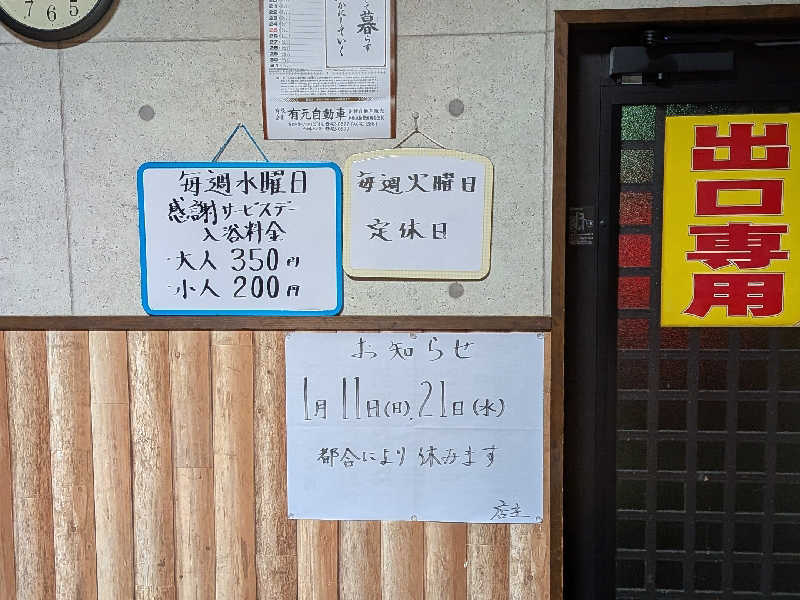 7 6 5
暮らす
有元自動車
毎週水曜日
感謝サービスデー
入浴料金
・大人 350円
・小人 200円
毎週火曜日
定休日
出口専用
お知らせ
1月11日(日).21日(水)
都合により休みます
店主